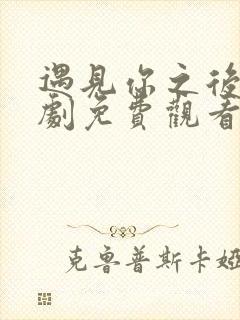 遇見你之後
劇免費觀看
克魯普斯卡婭